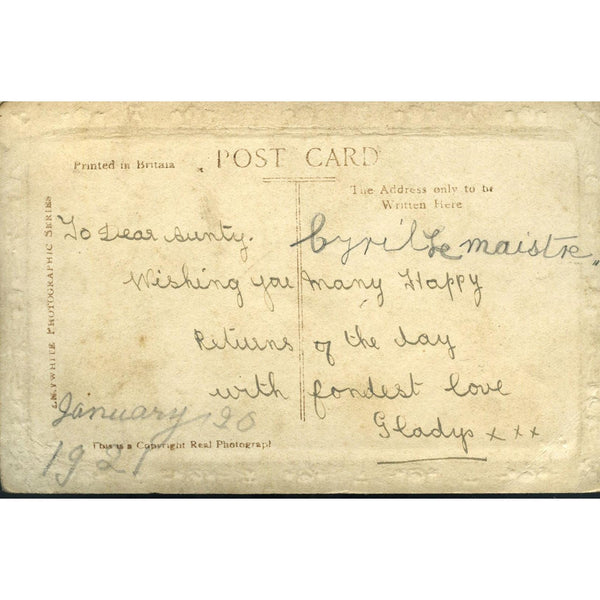 Printed in Britain
POST CARD
The Address only to be
Written Here
PHOTOGRAPHIC SERIES
To Dear Aunty.
Cyril Le maistre
Wishing you many Happy
Returns of the day
with fondest love
Gladys x x x
January 20
1921
This is a Copyright Real Photograph